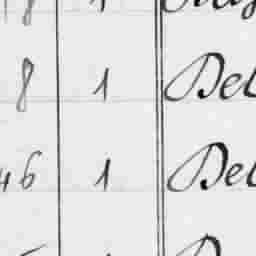 8 1 Del
46 1 Del